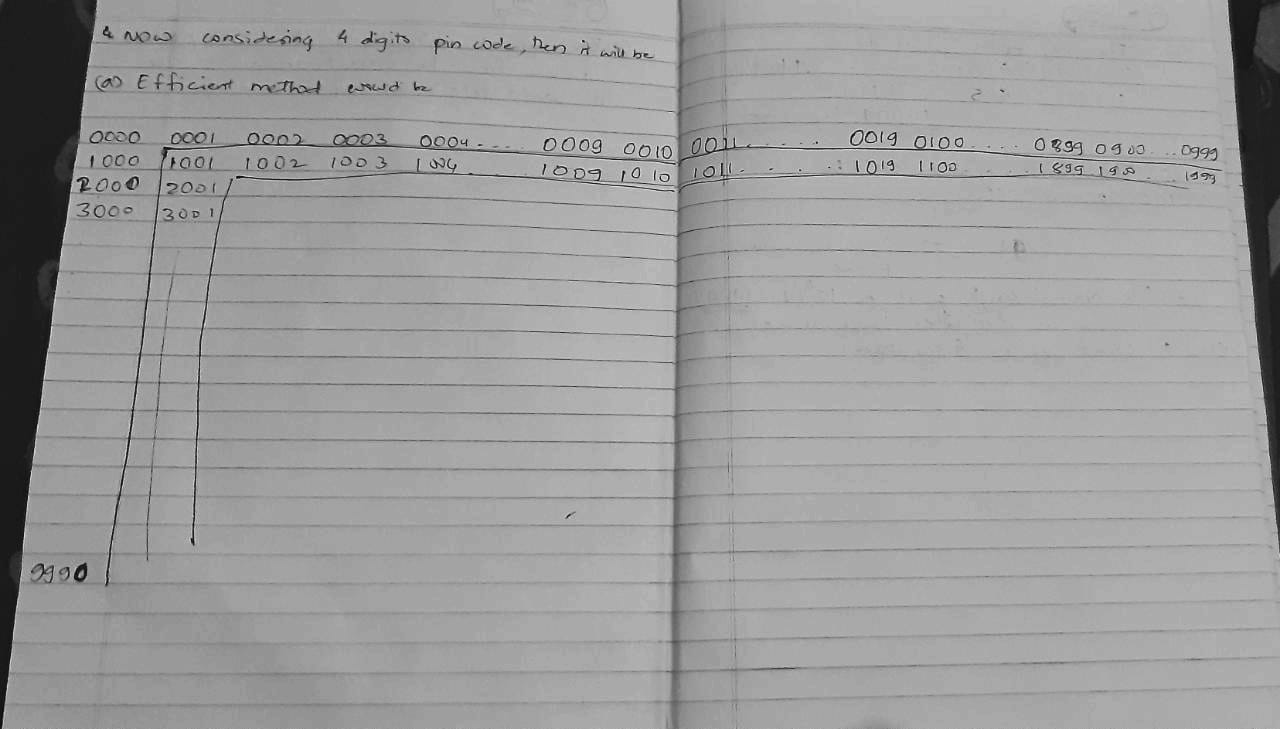 & Now considering 4 digits pin code, then it will be
(a) Efficient method would be
0000 0001 0002 0003 0004.... 0009 0010 0011...... 0019 0100.... 0899 0900...0999
1000 1001 1002 1003 1004 1009 1010 1011...... 1019 1100.... 1899 1900... 1999
2000 2001
3000 3001
9990